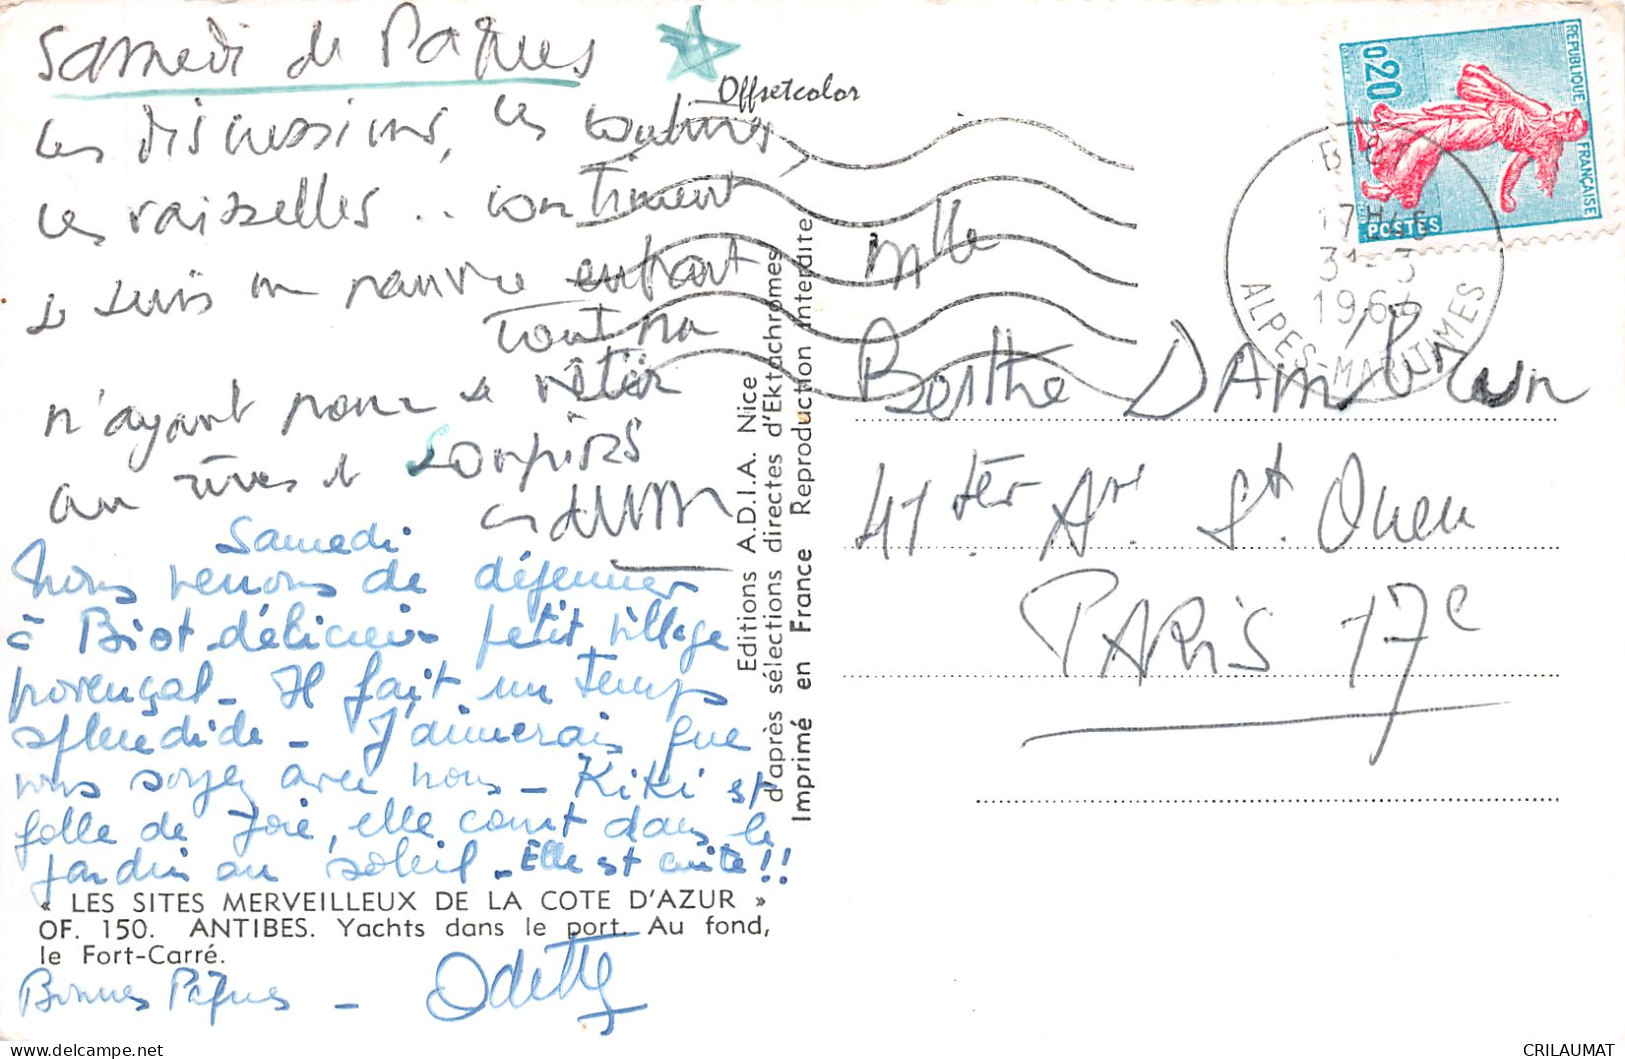 Samedi de Pâques
Offsetcolor
Les discussions, les
les vaisselles.. continuent
Je suis un pauvre enfant
tout nu
n'ayant pour se vêtir
au rêves et soupirs
Samedi
Nous venons de déjeuner
à Biot délicieux petit village
provençal - Il fait un temps
splendide - J'aimerais que
vous soyez avec nous - Kiki est
folle de joie, elle court dans le
jardin au soleil - Elle est cuite!!
« LES SITES MERVEILLEUX DE LA COTE D'AZUR »
OF. 150. ANTIBES. Yachts dans le port. Au fond,
le Fort-Carré.
Bonnes Pâques - Odette
Editions A.D.I.A. Nice
d'après sélections directes d'Ektachromes
Imprimé en France Reproduction interdite
REPUBLIQUE FRANÇAISE
0,20
POSTES
BIOT
17H45
31-3
1964
ALPES-MARITIMES
Mlle
Berthe
41 ter Ave St. Ouen
PARIS 17e
CRILAUMAT